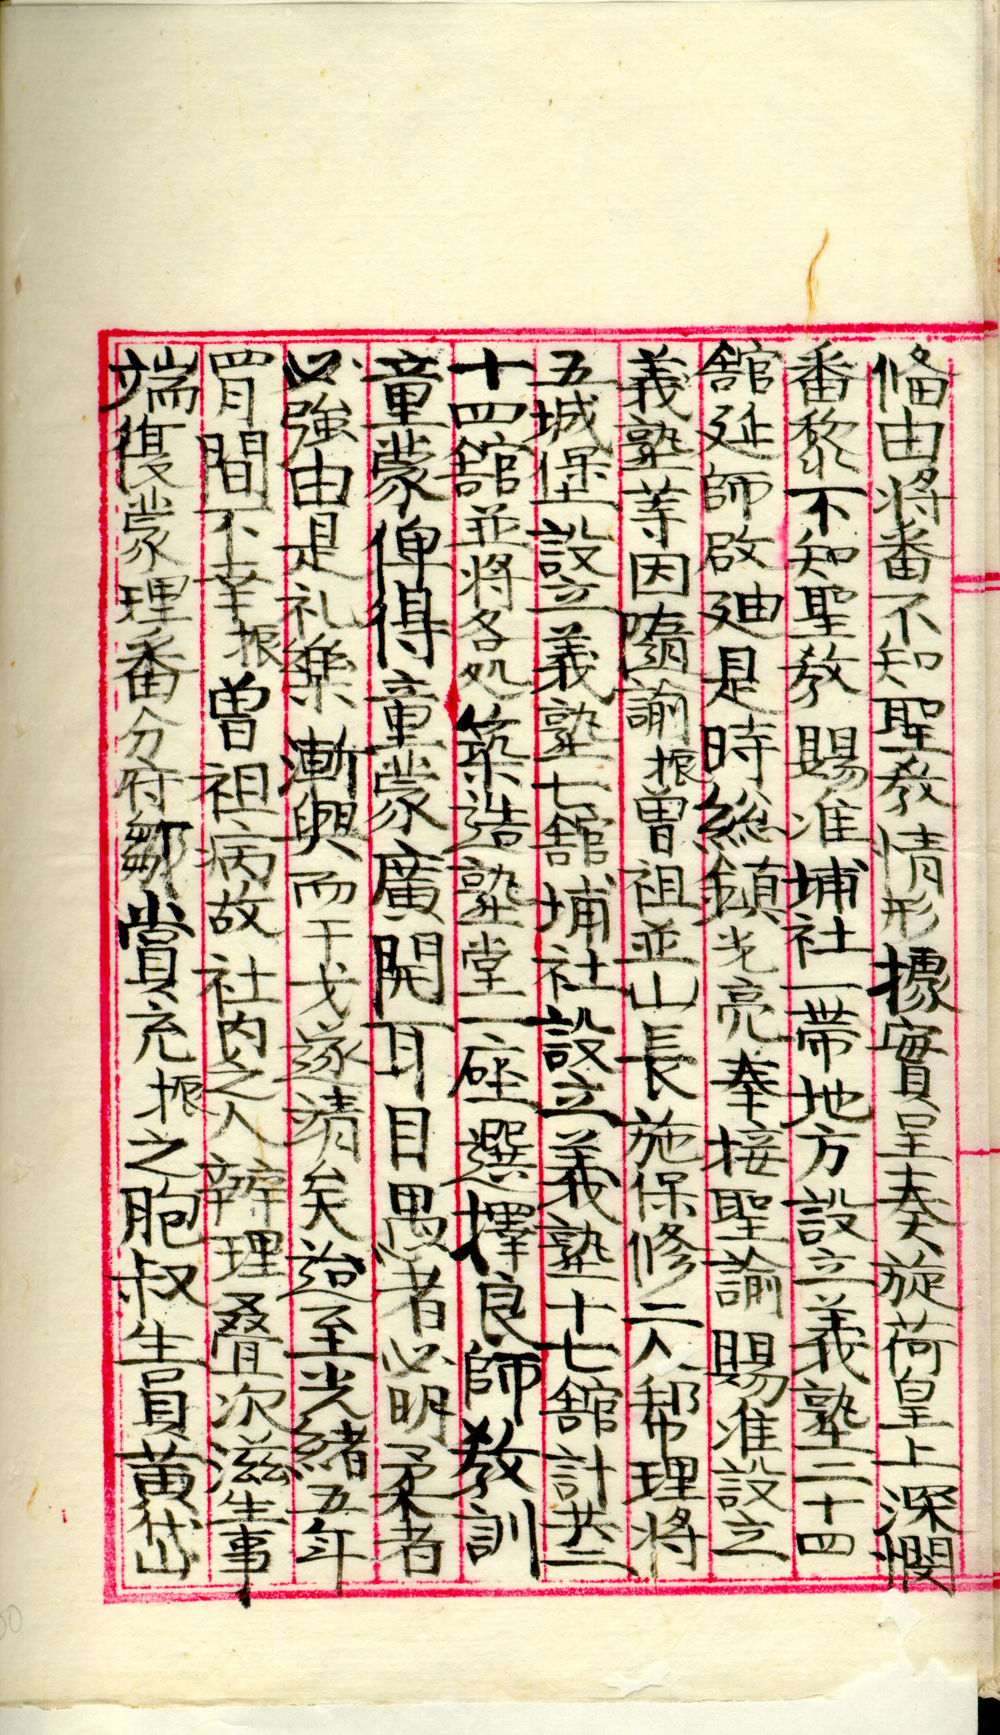 俻由将番不知聖教情形據實呈奏旋荷皇上深憫
番黎不知聖教賜准埔社一帶地方設立義塾二十四
舘延師啟廸是時総鎮光亮奉接聖諭賜准設立
義塾等因隨諭振曽祖並山長施保修二人幇理将
五城堡設立義塾七舘埔社設立義塾十七舘計共二
十四舘並将各処築造塾堂一座選擇良師教訓
童蒙俾得童蒙廣開耳目愚者必明柔者
必強由是礼樂漸興而干戈遂靖矣迨至光緒五年
四月間不幸振曽祖病故社內之人辦理叠次滋生事
端復蒙理番分府鄒賞充振之胞叔生員黃岱